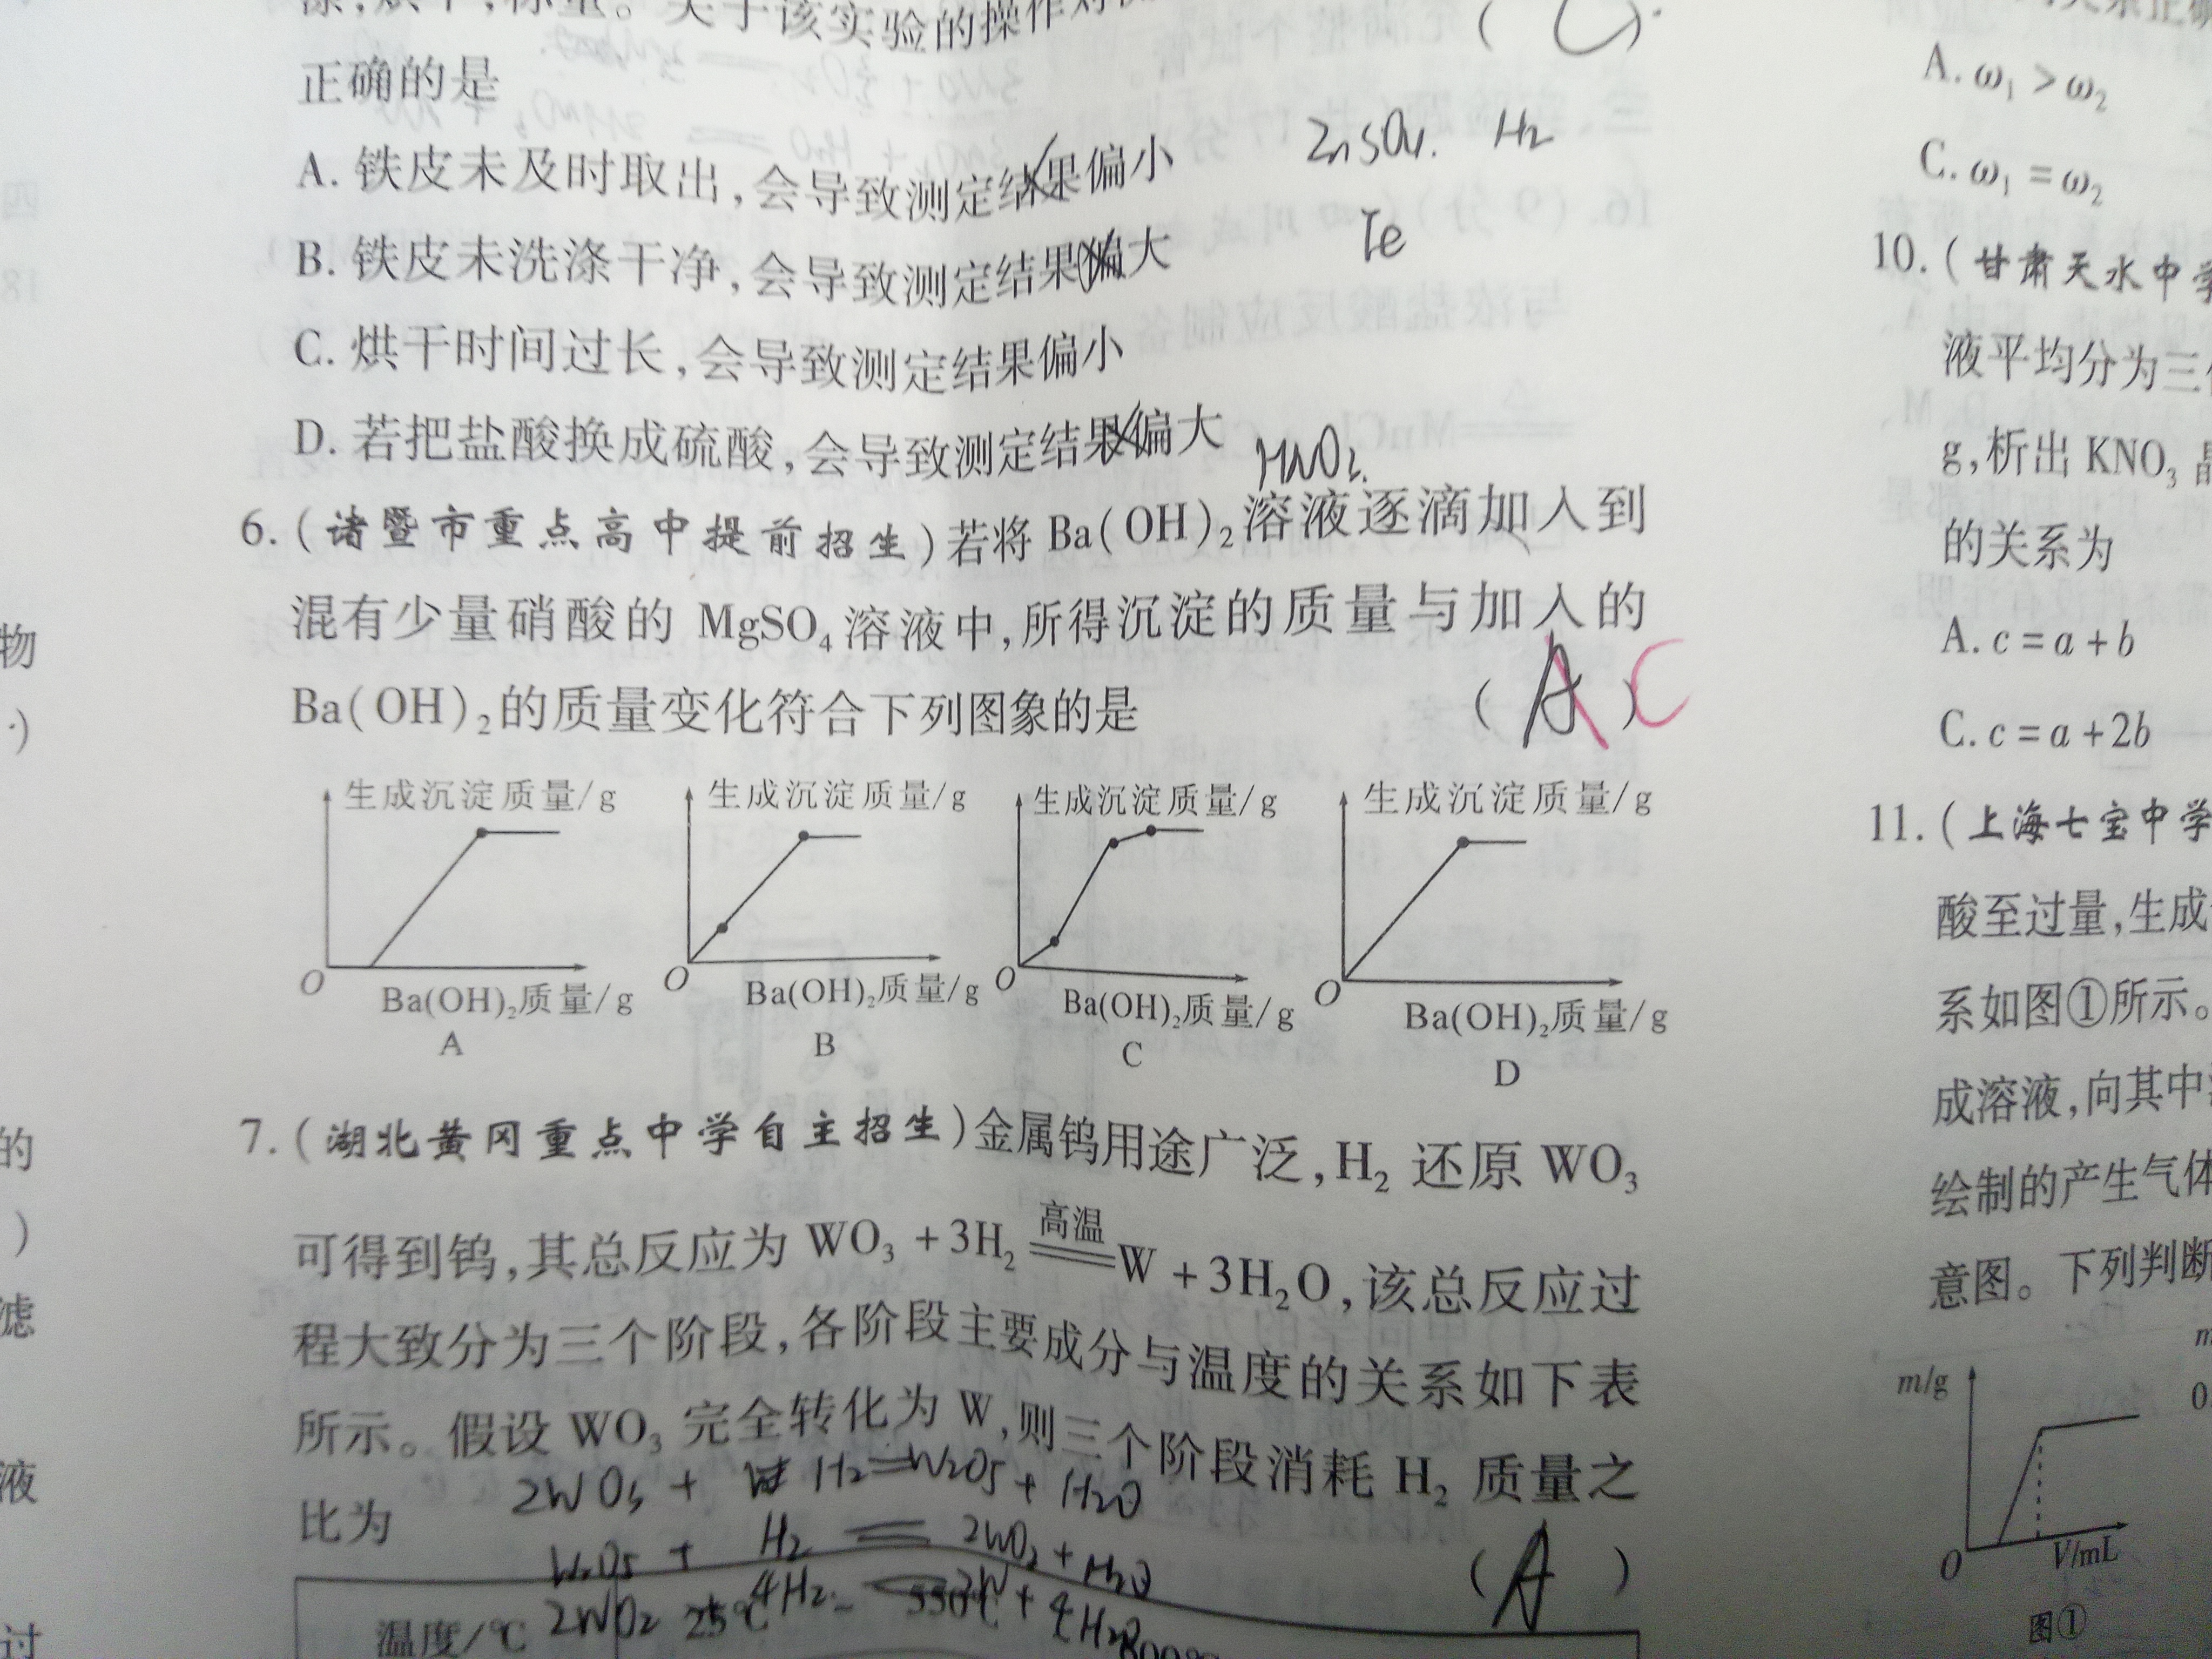 涤,烘干,称量。关于该实验的操作对
( C )
正确的是
A. 铁皮未及时取出,会导致测定结果偏小
ZnSO4. H2
B. 铁皮未洗涤干净,会导致测定结果偏大
Te
C. 烘干时间过长,会导致测定结果偏小
D. 若把盐酸换成硫酸,会导致测定结果偏大
6. (诸暨市重点高中提前招生)若将 Ba(OH)₂溶液逐滴加入到
混有少量硝酸的 MgSO₄溶液中,所得沉淀的质量与加入的
Ba(OH)₂的质量变化符合下列图象的是
( A ) C
生成沉淀质量/g
O
Ba(OH)₂质量/g
A
生成沉淀质量/g
O
Ba(OH)₂质量/g
B
生成沉淀质量/g
O
Ba(OH)₂质量/g
C
生成沉淀质量/g
O
Ba(OH)₂质量/g
D
7. (湖北黄冈重点中学自主招生)金属钨用途广泛,H₂ 还原 WO₃
可得到钨,其总反应为 WO₃ + 3H₂ 高温 W + 3H₂O,该总反应过
程大致分为三个阶段,各阶段主要成分与温度的关系如下表
所示。假设 WO₃ 完全转化为 W,则三个阶段消耗 H₂ 质量之
比为
( A )
2WO3 + H2 = W2O5 + H2O
W2O5 + H2 = 2WO2 + H2O
2WO2 4H2 2W + 4H2O
温度/℃ 25℃ 550℃
A. ω₁ > ω₂
C. ω₁ = ω₂
10. (甘肃天水中学
液平均分为三
g,析出 KNO₃
的关系为
A. c = a + b
C. c = a + 2b
11. (上海七宝中学
酸至过量,生成
系如图①所示。
成溶液,向其中
绘制的产生气体
意图。下列判断
m/g
O
V/mL
图①
物
的
滤
液
过